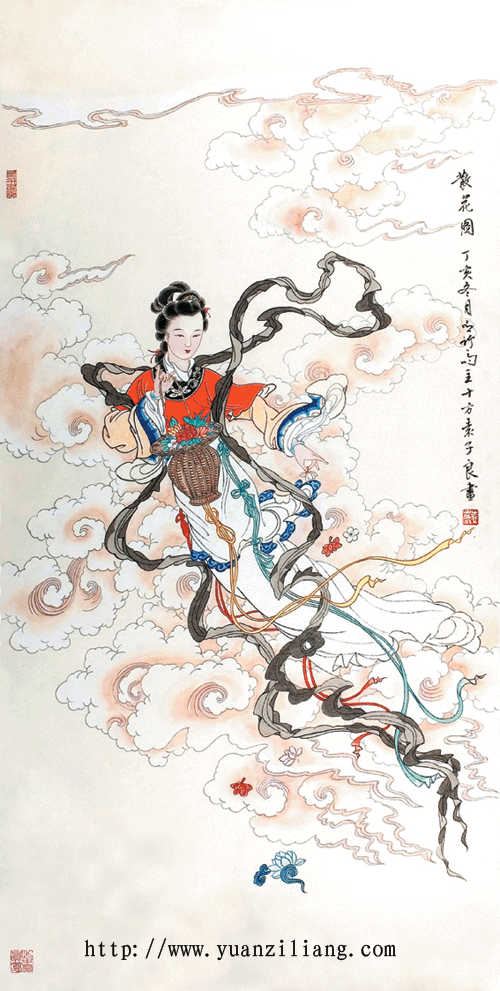 散花图 丁亥冬月 竹 主十方袁子良画
http://www.yuanziliang.com